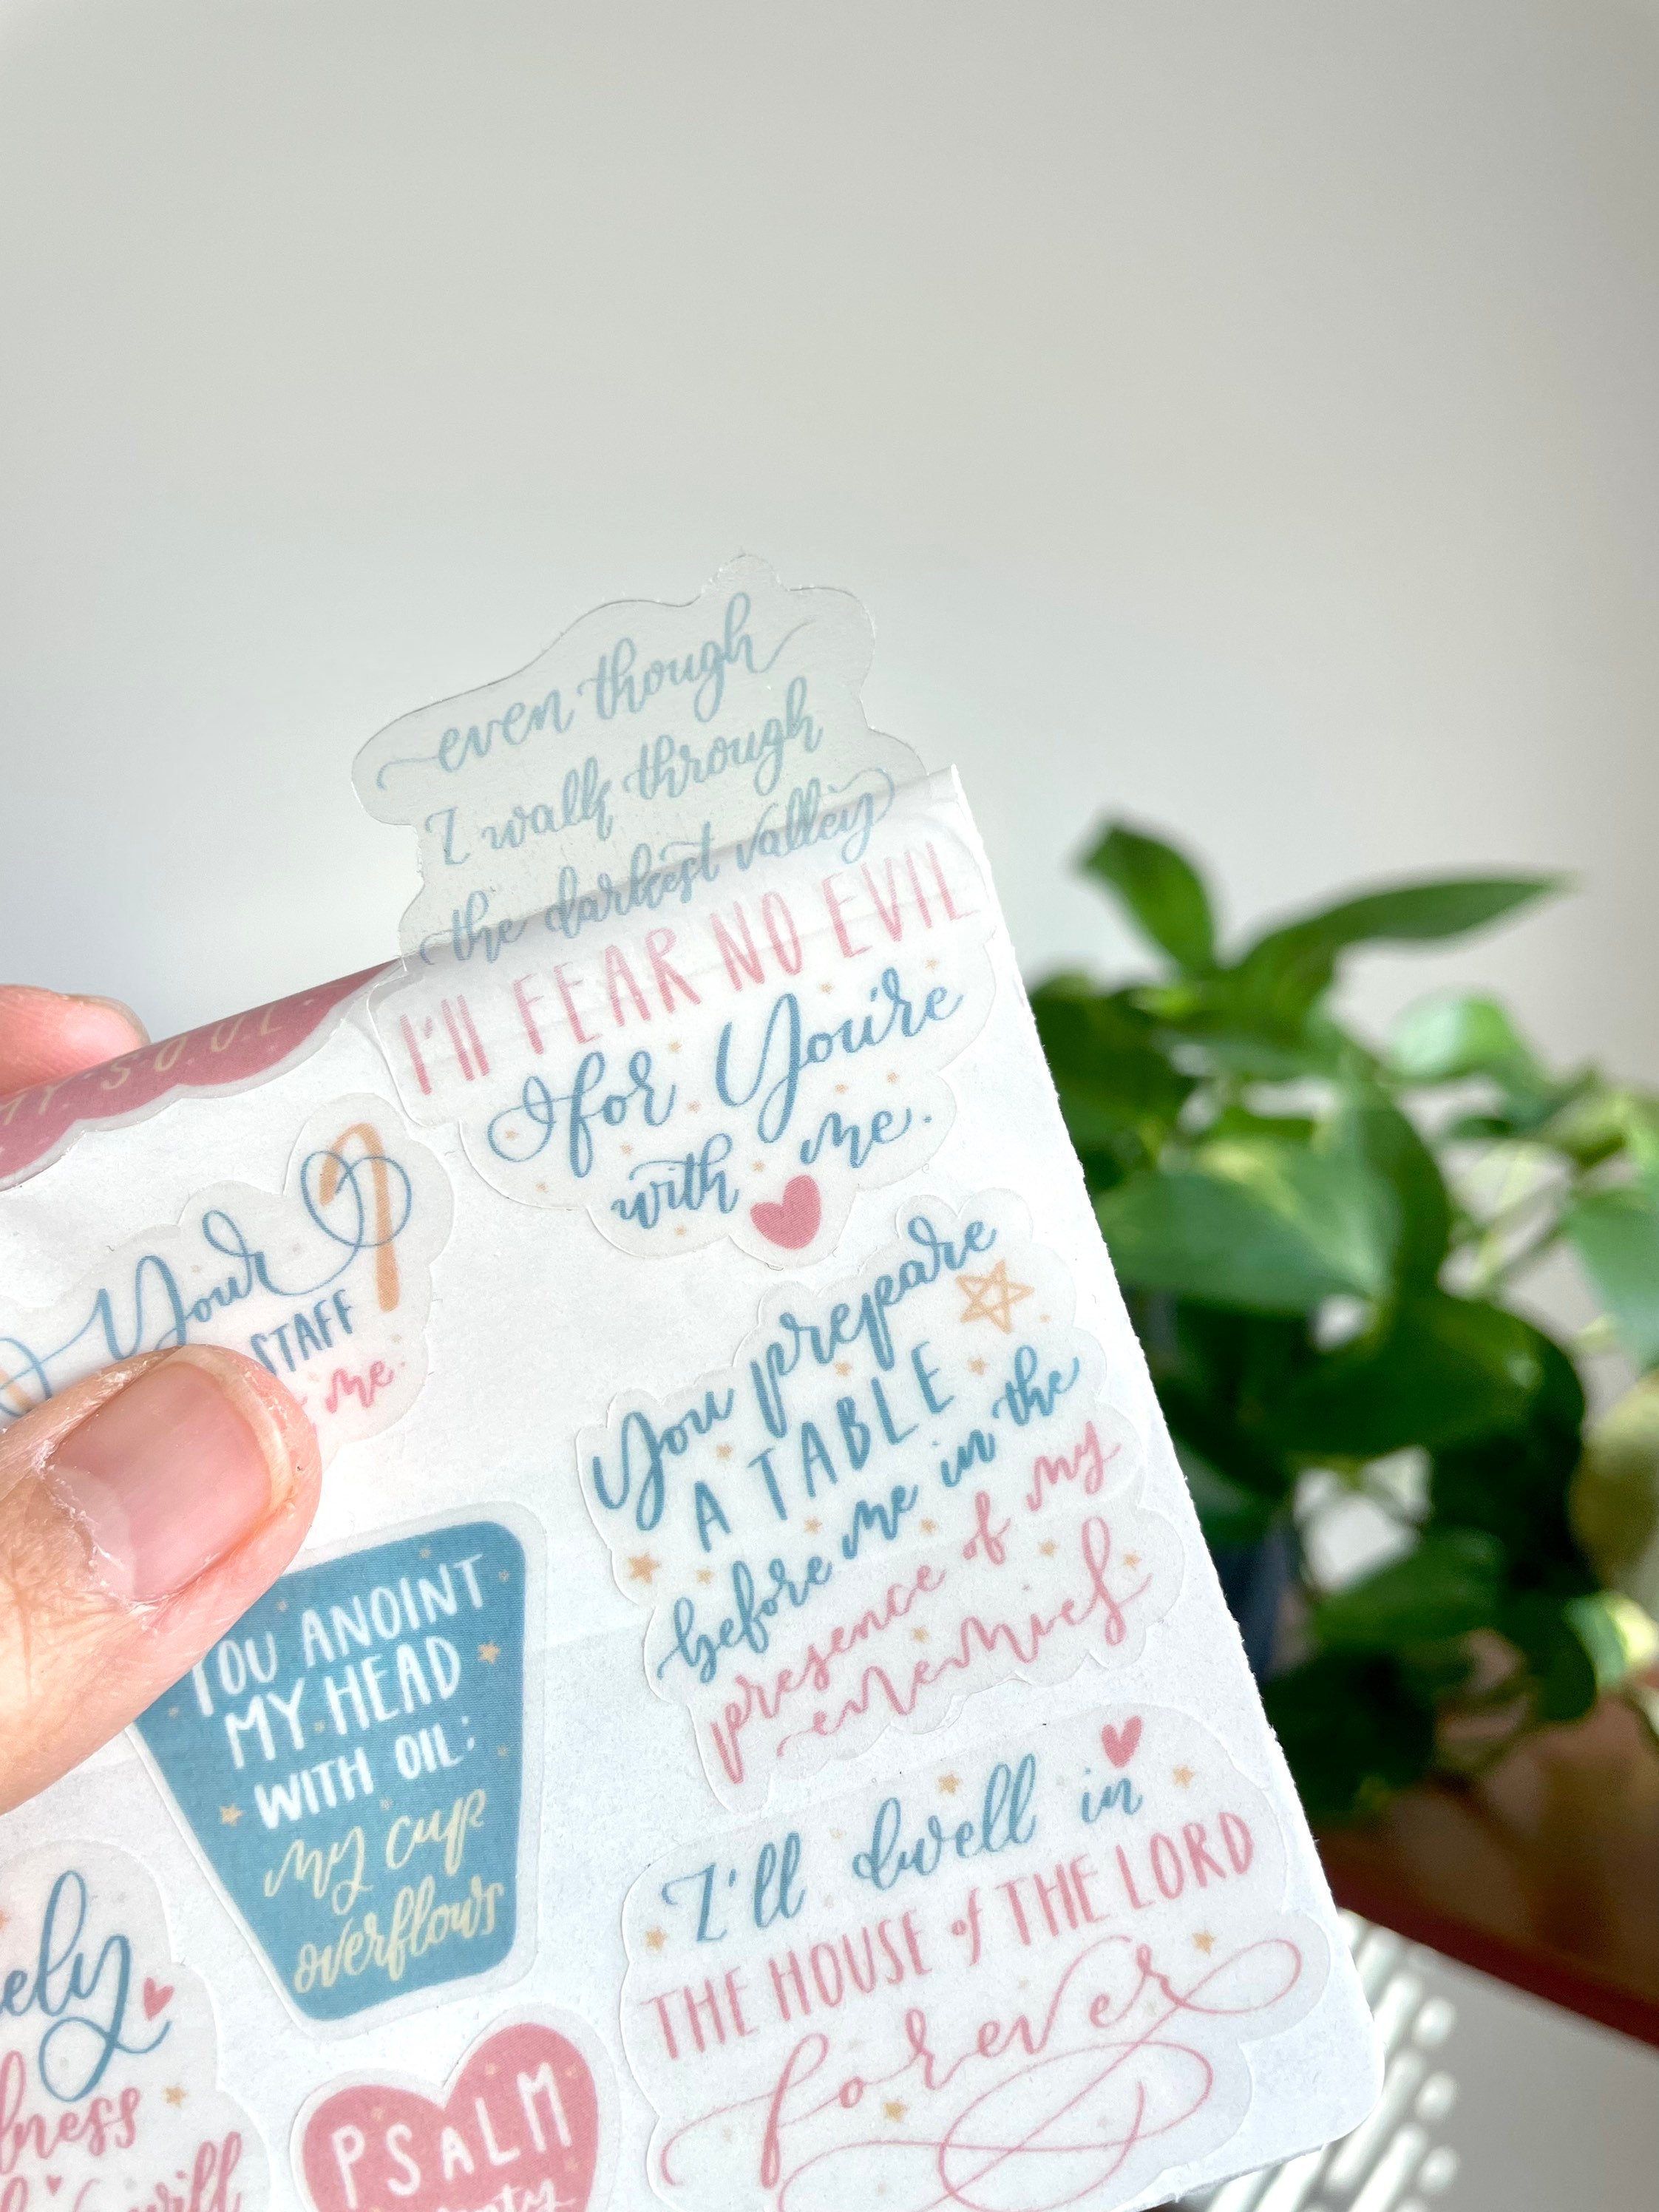 even though
I walk through
the darkest valley
I'll FEAR NO EVIL
for You're
with me.
MY SOUL
Your
STAFF
me.
You prepare
A TABLE
before me in the
presence of my
enemies
YOU ANOINT
MY HEAD
WITH OIL;
my cup
overflows
I'll dwell in
THE HOUSE of THE LORD
forever
PSALM
will